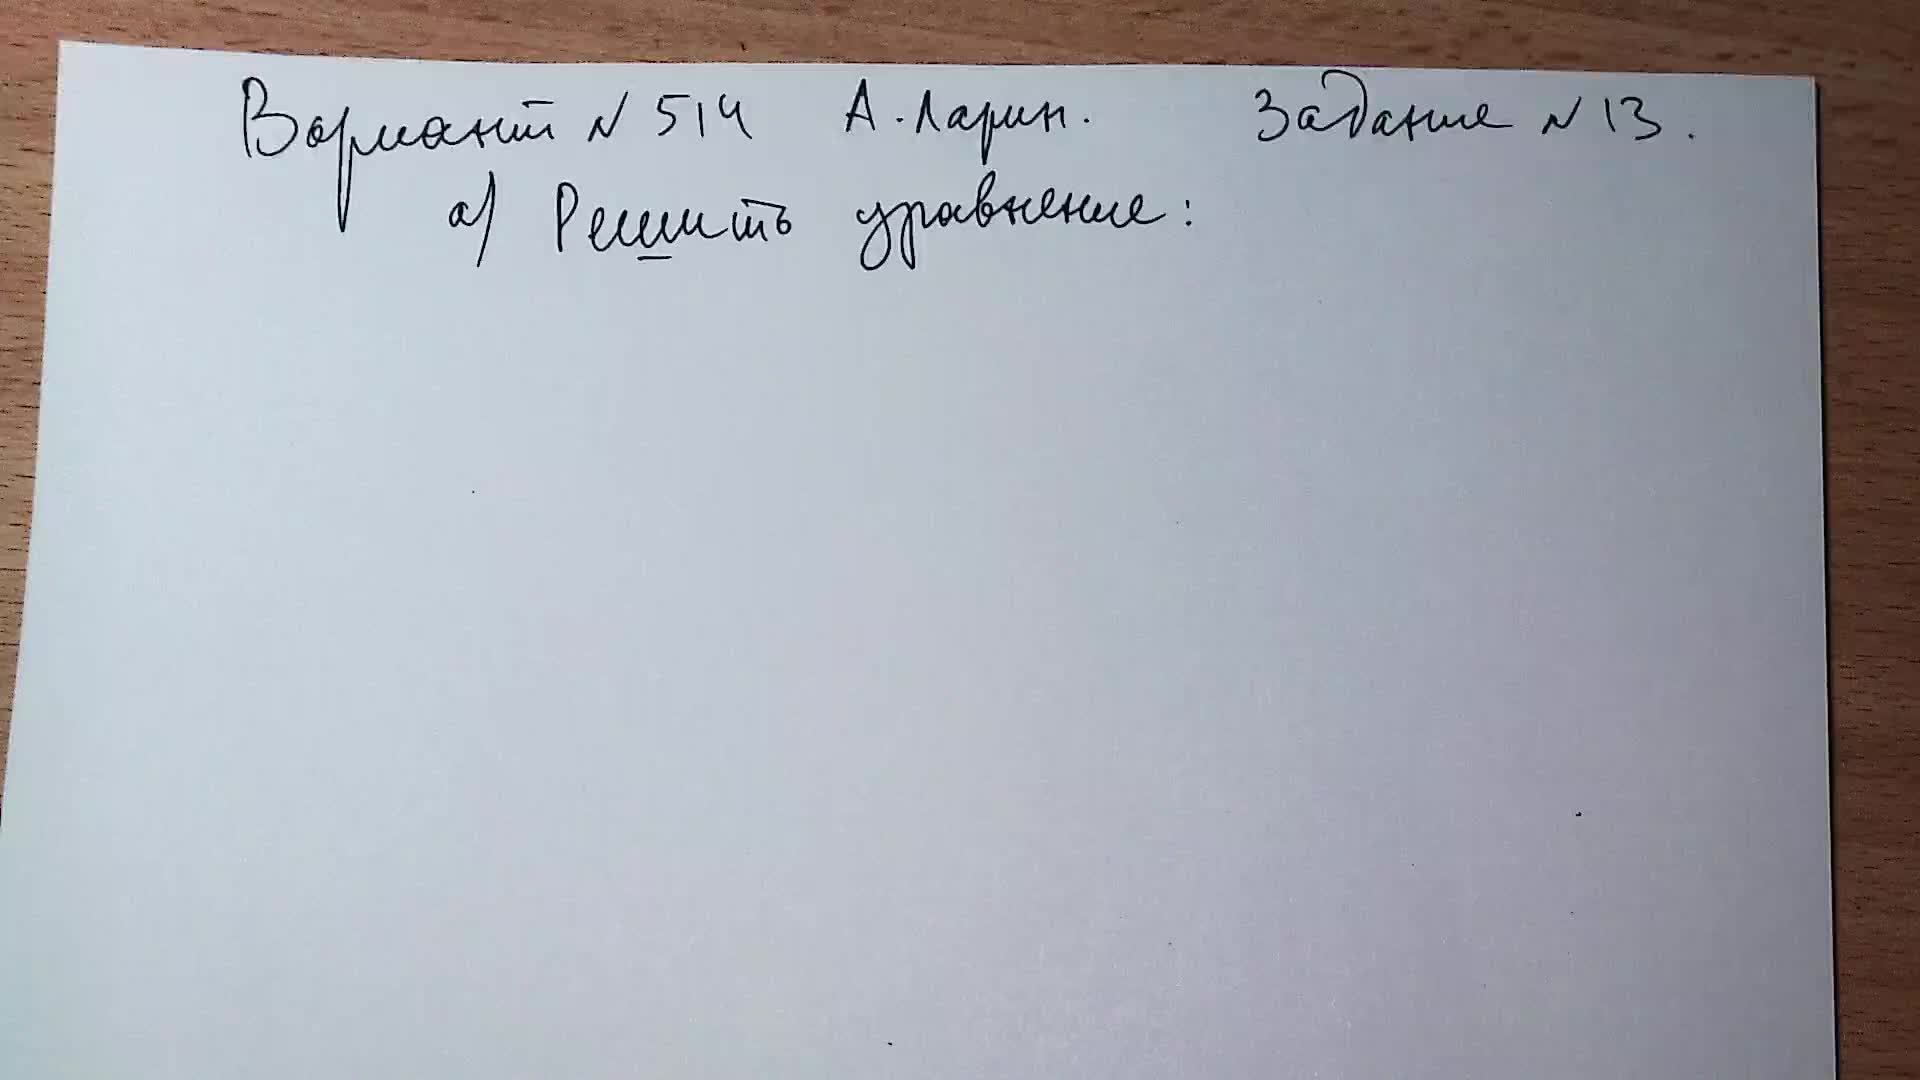 Вариант N 514 А. Ларин. Задание N 13.
а) Решить уравнение: